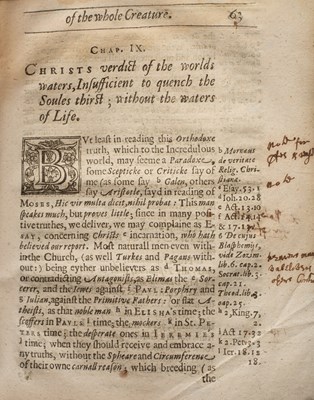 of the whole Creature. 63
CHAP. IX.
CHRISTS verdict of the worlds
waters, Insufficient to quench the
Soules thirst; without the waters
of Life.
BVt least in reading this Orthodoxe
truth, which to the Incredulous
world, may seeme a Paradoxe
some Scepticke or Criticke say of
me (as some say Galen, others
say Aristotle, sayd in reading of
MOSES, Hic vir multa dicit, nihil probat: This man
speakes much, but proves little; since in many posi-
tive truthes, we deliver, we may complaine as E-
SAY, concerning Christs incarnation, who hath
beleeved our report. Most naturall men even with-
in the Church, (as well Turkes and Pagans with-
out:) being eyther unbeleevers as THOMAS,
or contradicting Antagonists, as Elimas the Sor-
cerer, and the Iewes against PAVL: Porphiry and
Julian, against the Primitive Fathers: or flat A-
theists, as that noble man in ELISHA'S time; the
scoffers in PAVLS time, the mockers in St. PE-
TERS time; the desperate ones in IEREMIE'S
time; when they should receive and embrace a-
ny truths, without the Spheare and Circumference
of their owne carnall reason, which breeding (as
the
b Mornaus
de veritate
Relig. Chri-
stiana.
c Esay. 53. 1
d Joh. 20. 28
e Act. 13. 10
f Act. 14. 2
& 17. 13
g Decujus
Blasphemijs,
vide Zozim.
lib. 6. cap. 2
Socrat. lib. 3.
cap. 21.
Theod. lib. 3.
cap. 25.
h 2, King. 7,
2.
i Act 17. 32
k 2. Pet. 3. 3
l Ier. 18. 12
18.